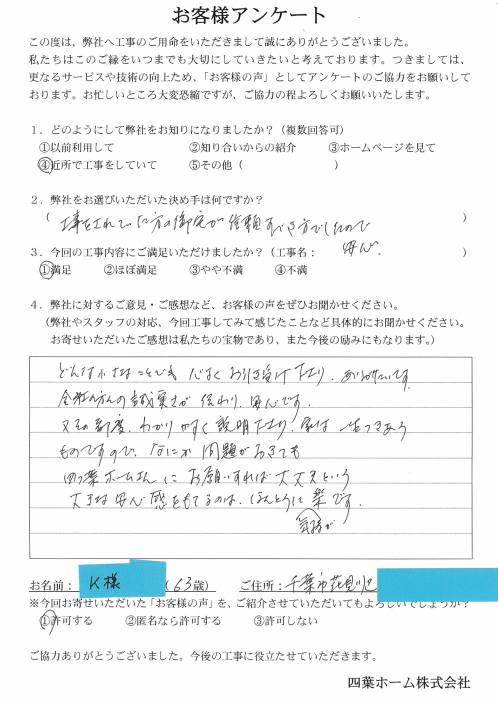 お客様アンケート
この度は、弊社へ工事のご用命をいただきまして誠にありがとうございました。
私たちはこのご縁をいつまでも大切にしていきたいと考えております。つきましては、
更なるサービスや技術の向上ため、「お客様の声」としてアンケートのご協力をお願いして
おります。お忙しいところ大変恐縮ですが、ご協力の程よろしくお願いいたします。
1．どのようにして弊社をお知りになりましたか？（複数回答可）
①以前利用して ②知り合いからの紹介 ③ホームページを見て
④近所で工事をしていて ⑤その他（ ）
2．弊社をお選びいただいた決め手は何ですか？
（工事をされていた方の御宅が信頼すべき方でしたので ）
安心.
3．今回の工事内容にご満足いただけましたか？（工事名： ）
①満足 ②ほぼ満足 ③やや不満 ④不満
4．弊社に対するご意見・ご感想など、お客様の声をぜひお聞かせください。
（弊社やスタッフの対応、今回工事してみて感じたことなど具体的にお聞かせください。
お寄せいただいたご感想は私たちの宝物であり、また今後の励みにもなります。）
どんな小さなことでも 心よく お引き受け下さり、ありがたいです。
会社の方々の誠実さが 伝わり、安心です。
又その都度、わかりやすく説明下さり、家は 一生つきあう
ものですので、なにか 問題がおきても
四つ葉ホームさん に お願いすれば 大丈夫という
大きな安心感をもてるのは、ほんとうに 楽です。
気持が
お名前： K様 （63歳） ご住所：千葉市花見川区
※今回お寄せいただいた「お客様の声」を、ご紹介させていただいてもよろしいでしょうか？
①許可する ②匿名なら許可する ③許可しない
ご協力ありがとうございました。今後の工事に役立たせていただきます。
四葉ホーム株式会社